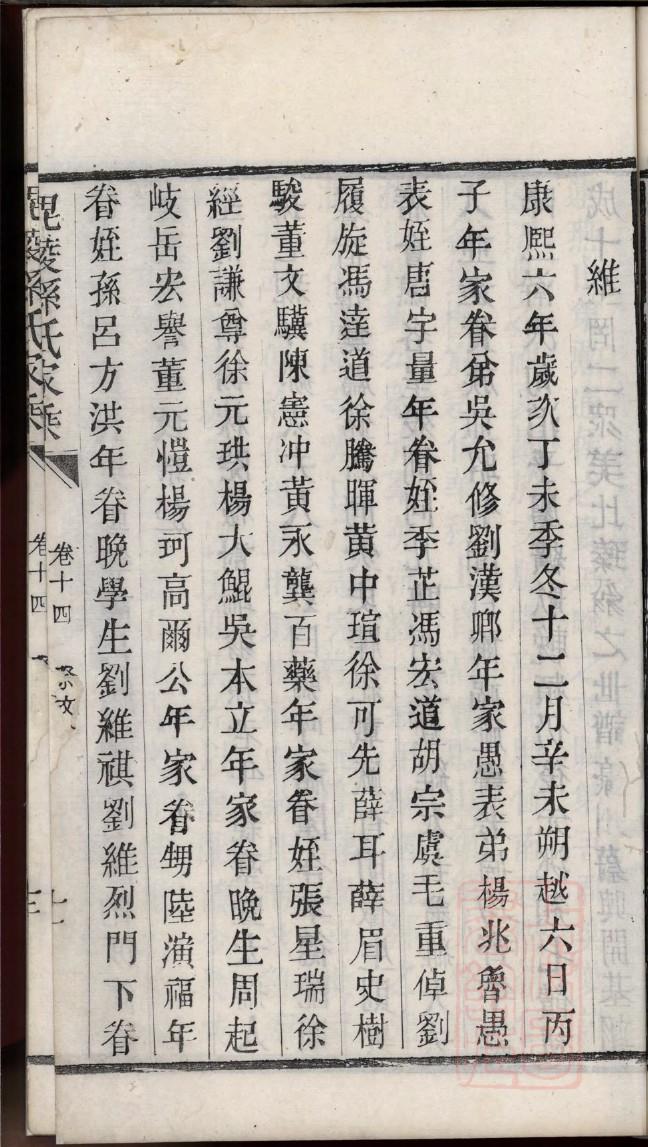 維
康熙六年歲次丁未季冬十二月辛未朔越六日丙
子年家眷弟吳允修劉漢卿年家愚表弟楊兆魯愚
表姪唐宇量年眷姪季芷馮宏道胡宗虞毛重倬劉
履旋馮達道徐騰暉黃中瑄徐可先薛耳薛眉史樹
駿董文驥陳憲冲黃永龔百藥年家眷姪張星瑞徐
經劉謙尊徐元珙楊大鯤吳本立年家眷晚生周起
岐岳宏譽董元愷楊珂高爾公年家眷甥陸演福年
眷姪孫呂方洪年眷晚學生劉維祺劉維烈門下眷
毘陵孫氏家乘
卷十四
祭文
毘陵孫氏家乘
卷十四